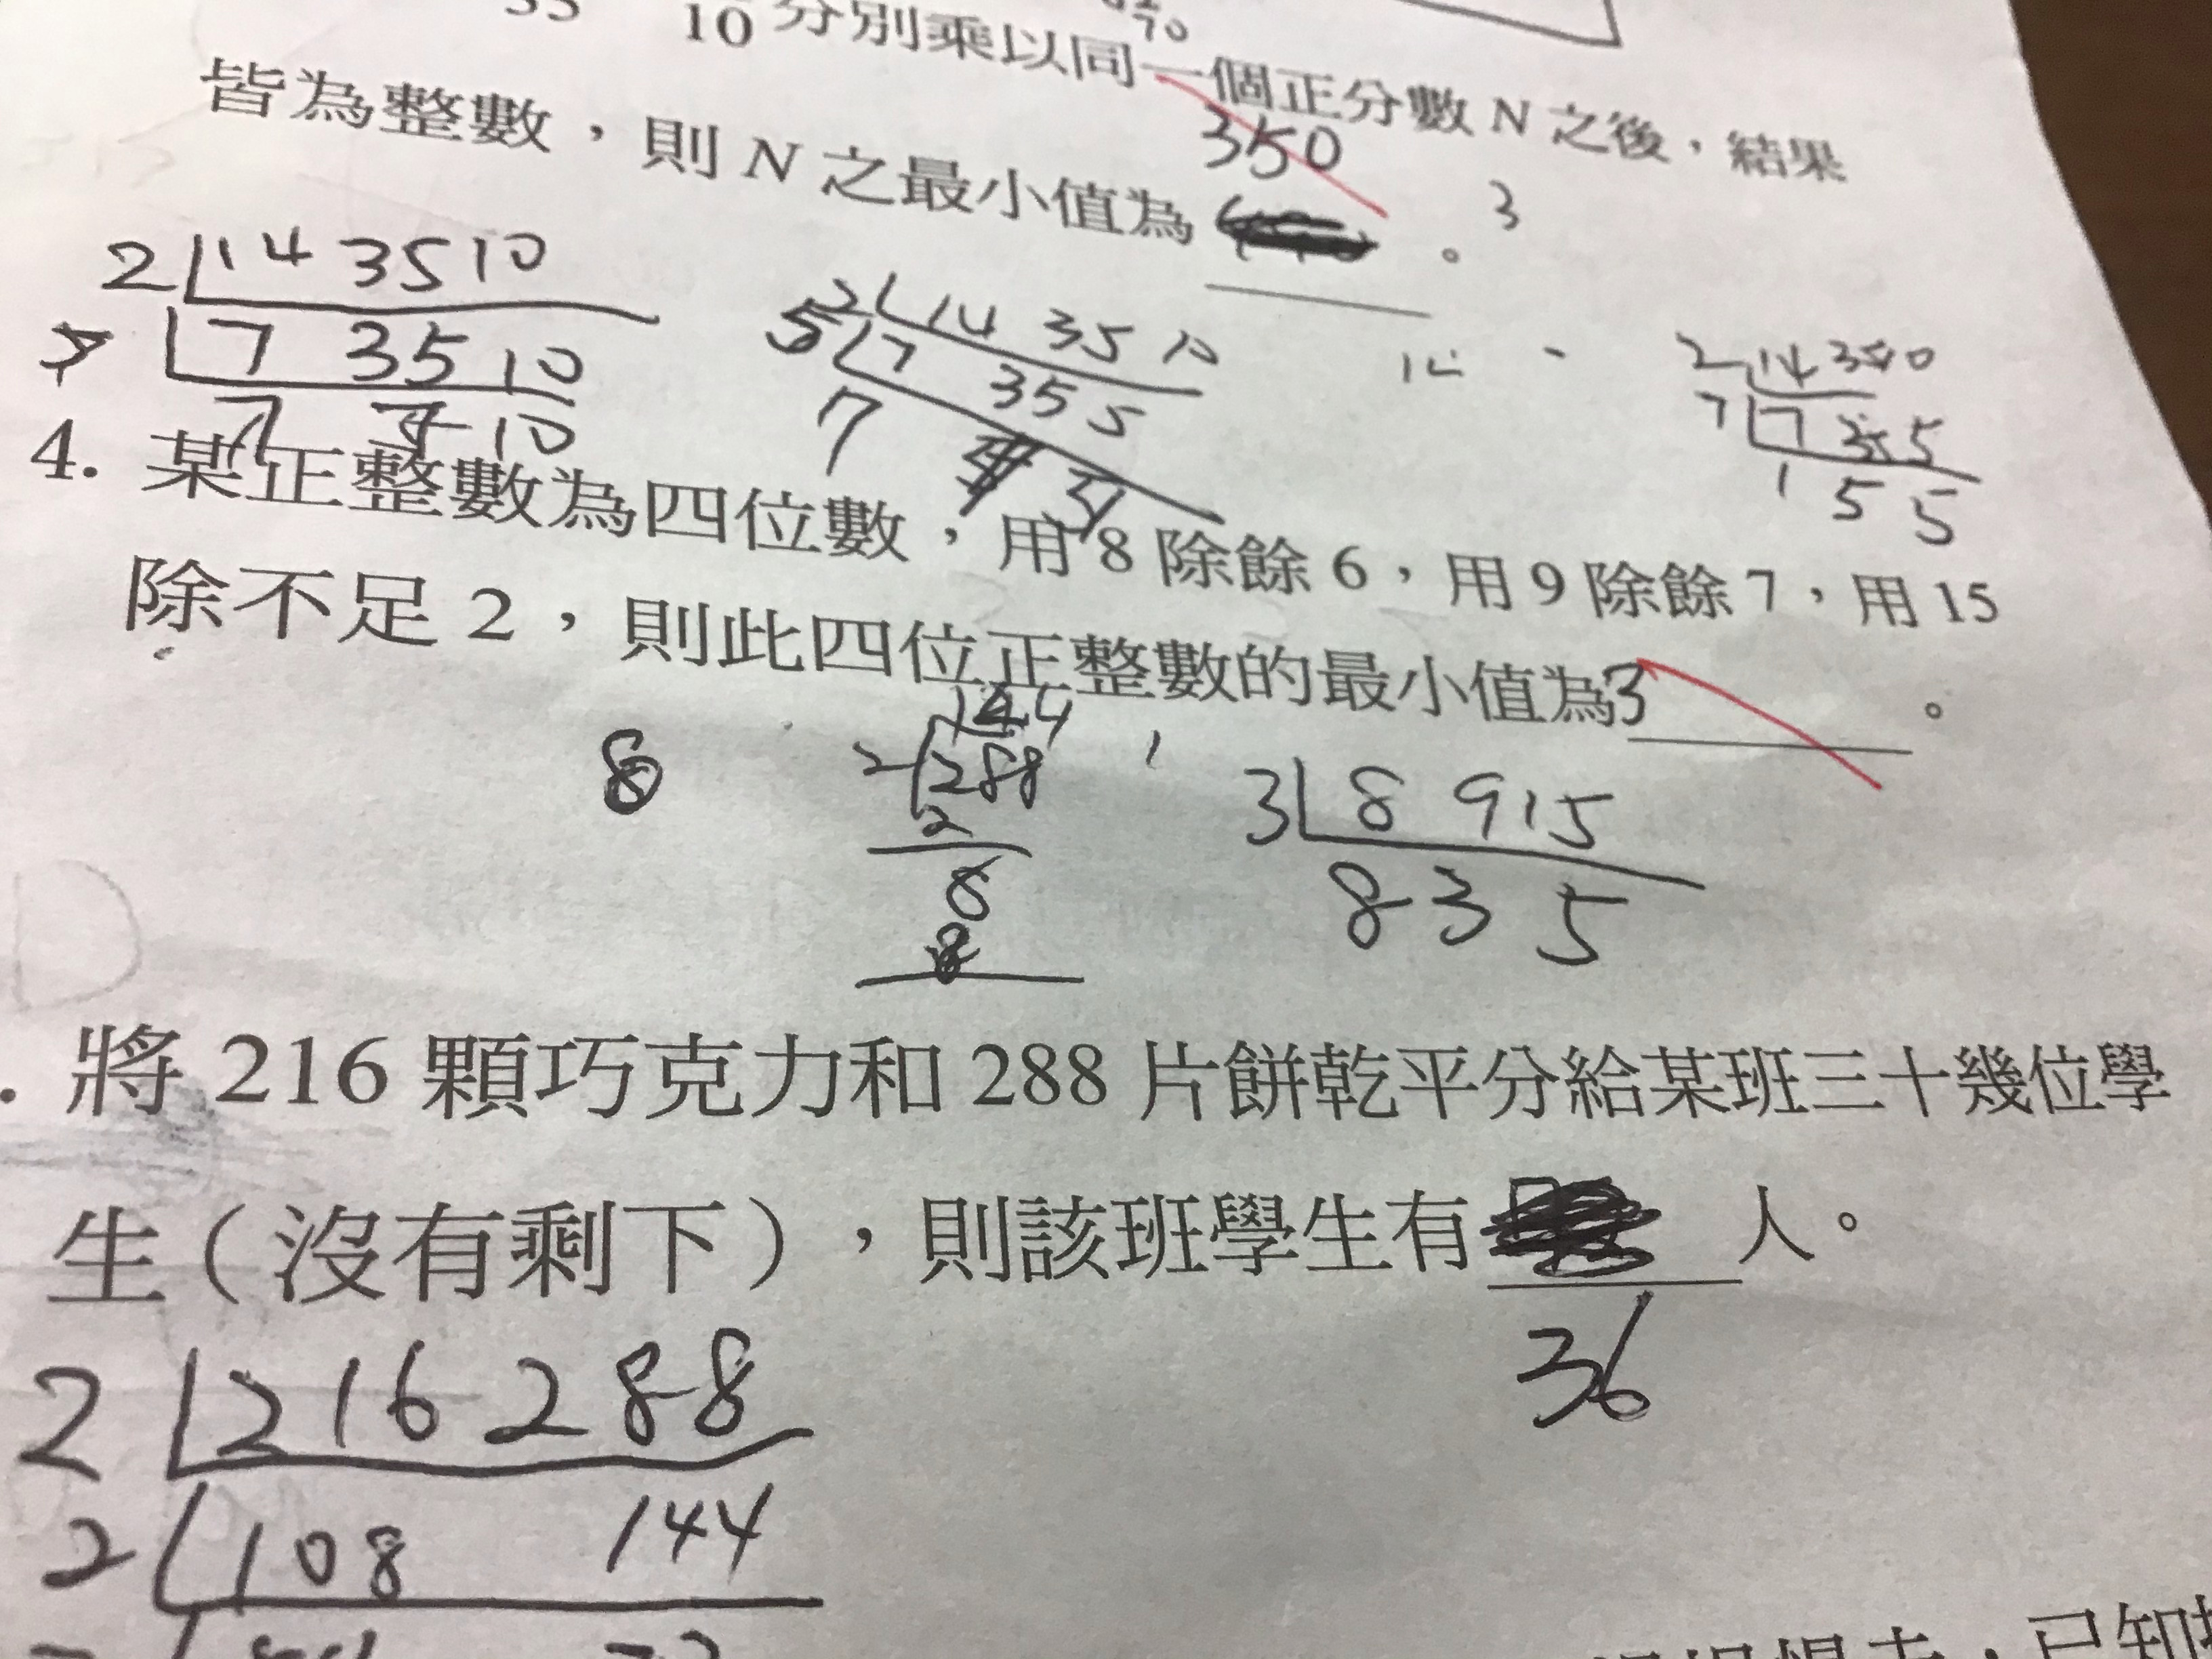 10 分別乘以同一個正分數 N 之後，結果
70
皆為整數，則 N 之最小值為 350 。 3
2 14 35 10
7 35 10
7 10
2 14 35 10
5 7 35 5
7
2 14 35 10
7 7 35 5
1 5 5
4. 某正整數為四位數，用 8 除餘 6，用 9 除餘 7，用 15
除不足 2，則此四位正整數的最小值為3 。
8
144
2 288
2
8
8
3 8 9 15
8 3 5
. 將 216 顆巧克力和 288 片餅乾平分給某班三十幾位學
生（沒有剩下），則該班學生有 人。
36
2 216 288
2 108 144
，已知